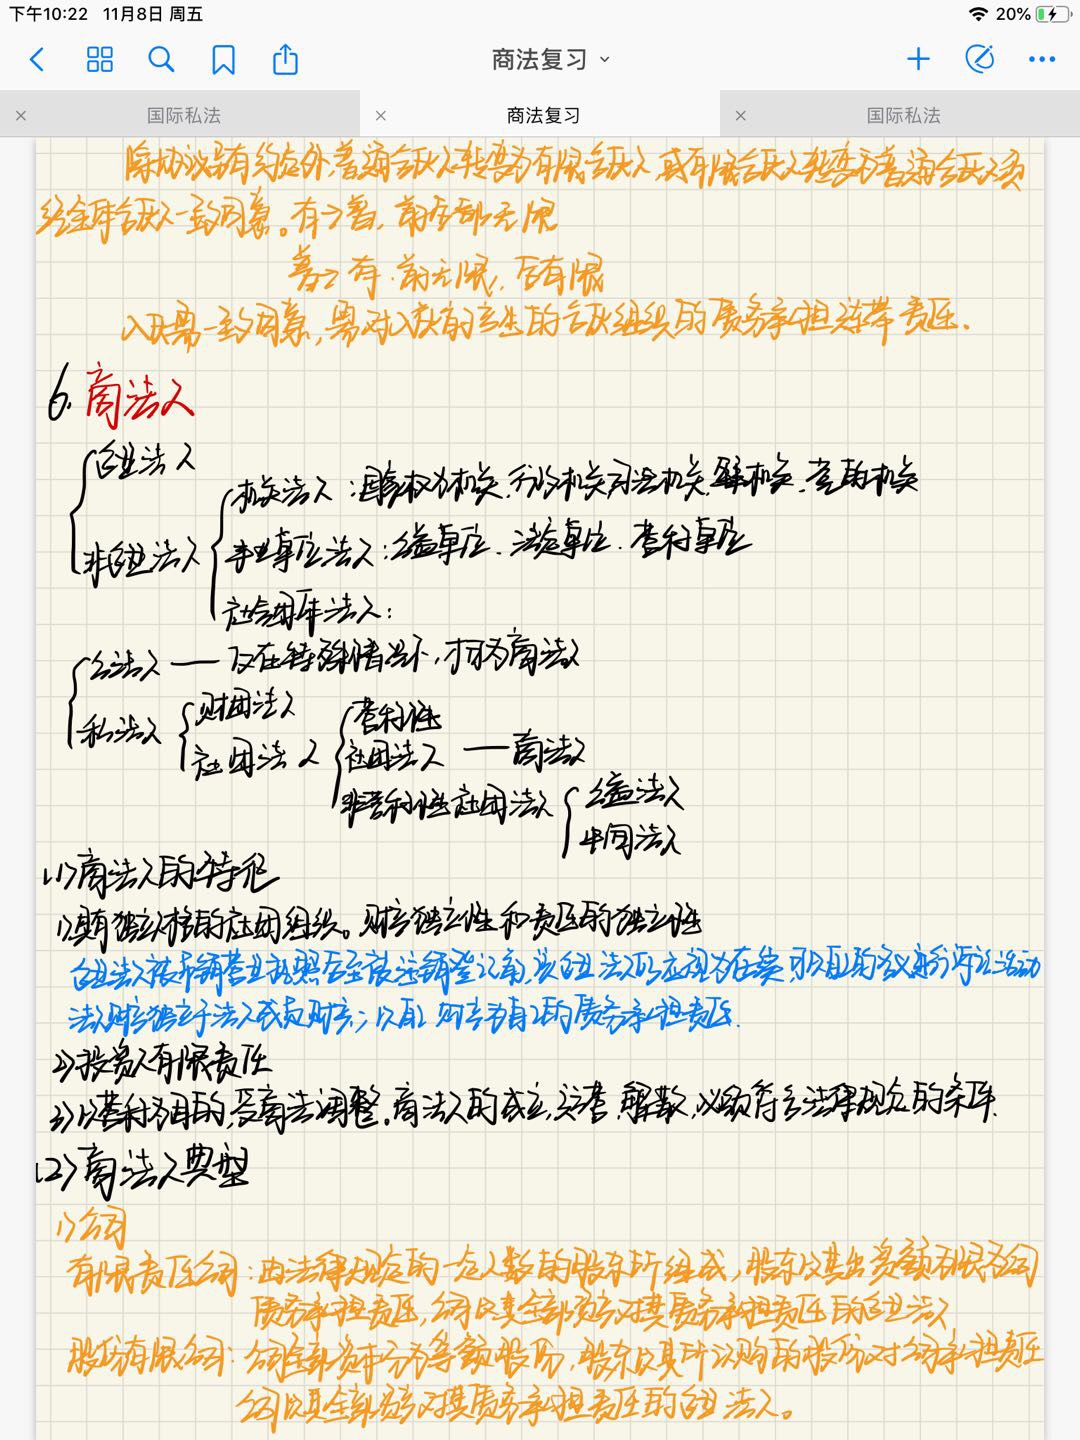 下午10:22 11月8日 周五
20%
商法复习
国际私法
商法复习
国际私法
除协议另有约定外,普通合伙人转变为有限合伙人,或有限合伙人转变为普通合伙人须
经全体合伙人一致同意。有→普,前全部无限
普→有.前无限,后有限
入伙需一致同意,需对入伙前产生的合伙组织的债务承担连带责任.
6.商法人
企业法人
非企业法人
机关法人:国家权力机关、行政机关、司法机关、军事机关、党的机关
事业单位法人:公益单位、法定单位、营利单位
社会团体法人:
公法人——只在特殊情况下,才可为商法人
私法人
财团法人
社团法人
营利性
社团法人——商法人
非营利性社团法人
公益法人
中间法人
(1)商法人的特征
1)具有独立人格的社团组织。财产独立性和责任的独立性
企业法人被吊销营业执照后至被注销登记前,该企业法人仍应视为存续,可以自己的名义进行诉讼活动
法人财产独立于法人成员财产;以自己财产为自己的债务承担责任.
2)投资人有限责任
3)以营利为目的,受商法调整.商法人的成立、运营、解散、必须符合法律规定的条件.
(2)商法人典型
1)公司
有限责任公司:由法律规定的一定人数的股东所组成,股东以其出资额为限对公司
债务承担责任,公司以其全部资产对其债务承担责任的企业法人
股份有限公司:公司全部资本分为等额股份,股东以其所认购的股份对公司承担责任
公司以其全部资产对其债务承担责任的企业法人。